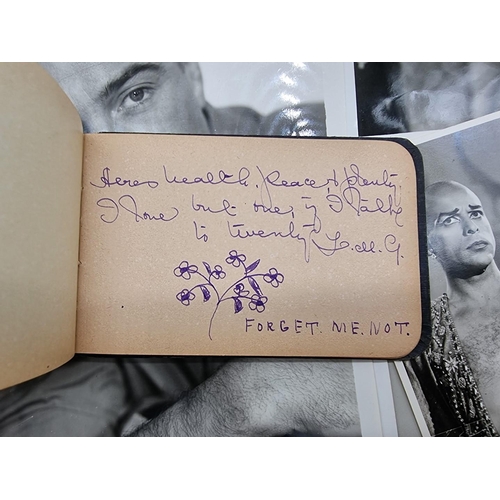 Heres health, peace & plenty.
I love but one, if I talk
to twenty L.M.G.
FORGET. ME. NOT.